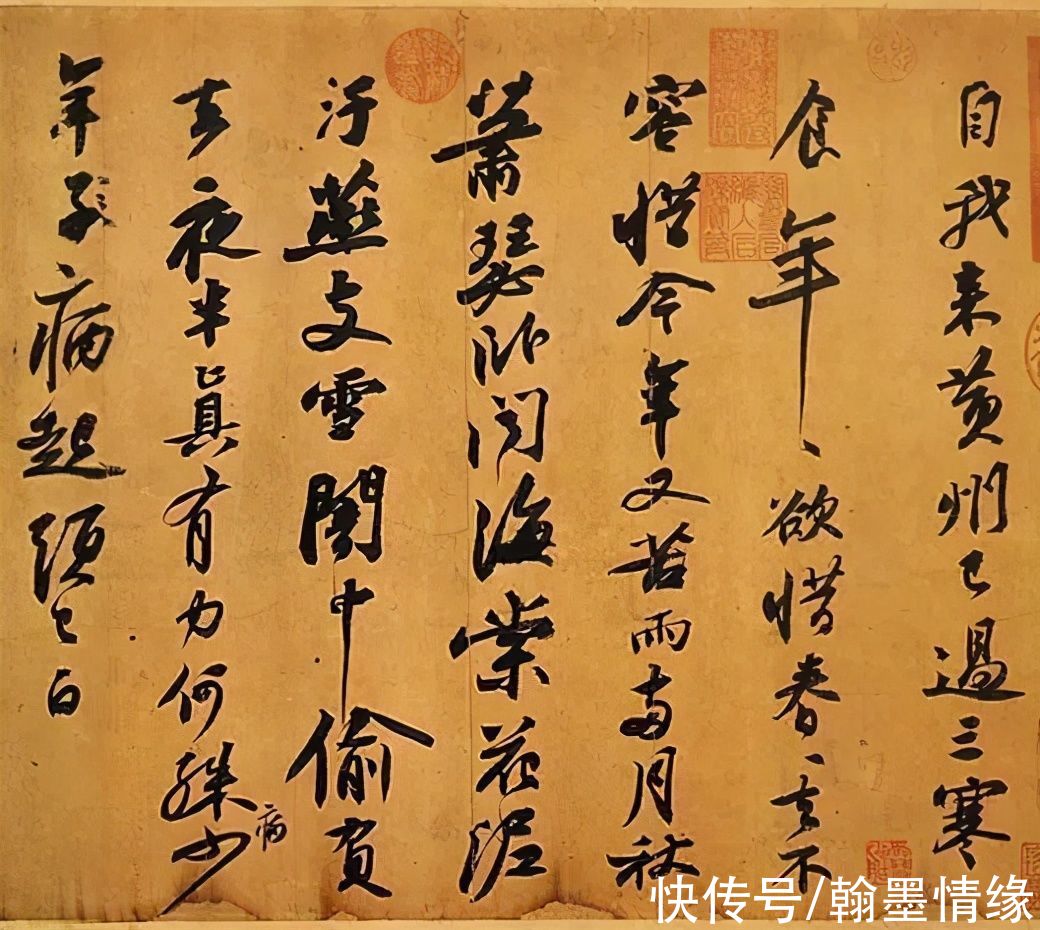 自我来黄州已過三寒
食年、欲惜春、去不
容惜今年又苦雨兩月秋
蕭瑟卧聞海棠花泥
汙燕支雪闇中偷負
去夜半真有力何殊少
病
年子病起頭已白
快传号/翰墨情缘